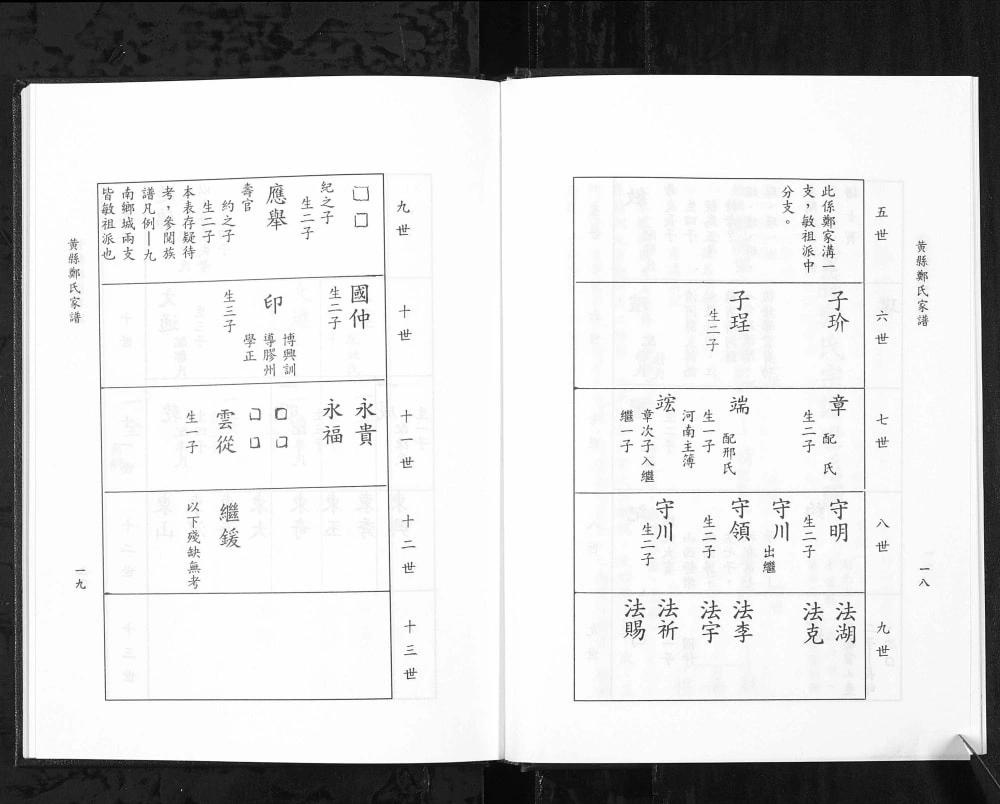 黃縣鄭氏家譜
一八
五世
此係鄭家溝一
支，敏祖派中
分支。
六世
子玠
子珵
生二子
七世
章
配 氏
生二子
端
配邢氏
生一子
河南主簿
竤
章次子入繼
繼一子
八世
守明
生二子
守川
出繼
守領
生二子
守川
生二子
九世
法湖
法克
法李
法宇
法祈
法賜
九世
□□
紀之子
生二子
應舉
壽官
約之子
生二子
本表存疑待
考，參閱族
譜凡例—九
南鄉城兩支
皆敏祖派也
十世
國仲
生二子
印
博興訓
導膠州
學正
生三子
十一世
永貴
永福
□□
□□
雲從
生一子
十二世
繼鍰
以下殘缺無考
十三世
黃縣鄭氏家譜
一九